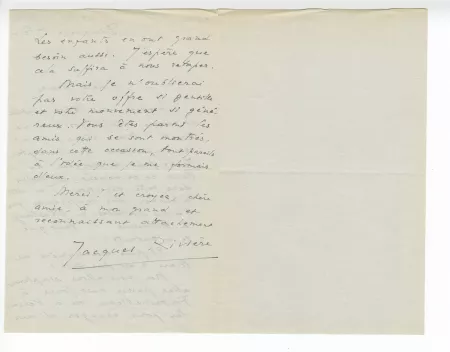 Les enfants en ont grand
besoin aussi. J'espère que
ça suffira à nous retaper.
Mais, je n'oublierai
pas votre offre si gentille
et votre mouvement si géné
reux. Vous êtes parmi les
amis qui se sont montrés,
dans cette occasion, tout pareils
à l'idée que je me formais
d'eux.
Merci! et croyez, chère
amie, à mon grand et
reconnaissant attachement
Jacques Rivière